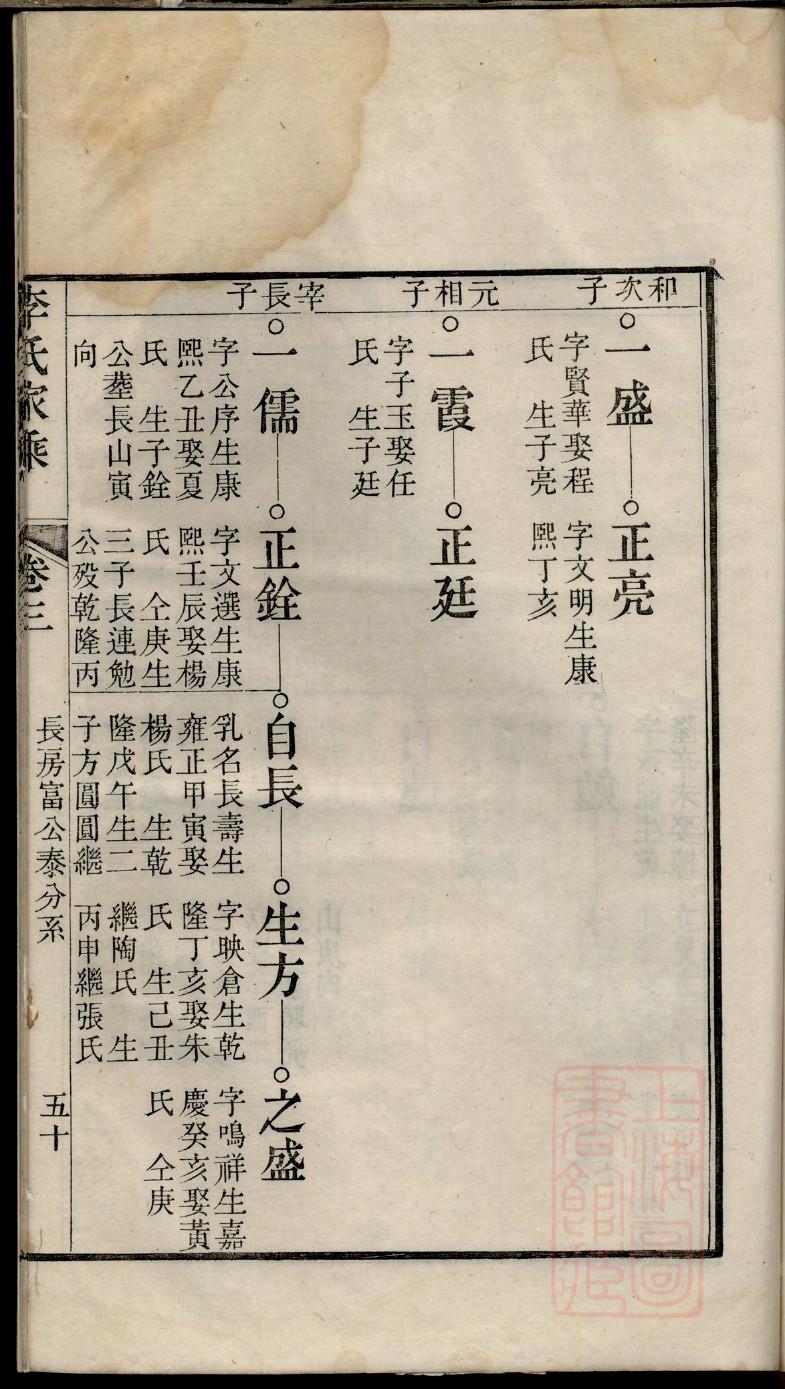 和次子
○一盛
字賢華娶程
氏　生子亮
○正亮
字文明生康
熙丁亥
元相子
○一霞
字子玉娶任
氏　生子廷
○正廷
宰長子
○一儒
字公序生康
熙乙丑娶夏
氏　生子銓
公塟長山寅
向
○正銓
字文選生康
熙壬辰娶楊
氏　仝庚生
三子長連勉
公殁乾隆丙
○自長
乳名長壽生
雍正甲寅娶
楊氏　生乾
隆戊午生二
子方圓圓繼
○生方
字映倉生乾
隆丁亥娶朱
氏　生己丑
繼陶氏　生
丙申繼張氏
○之盛
字鳴祥生嘉
慶癸亥娶黃
氏　仝庚
李氏家乘
卷三
長房富公泰分系
五十